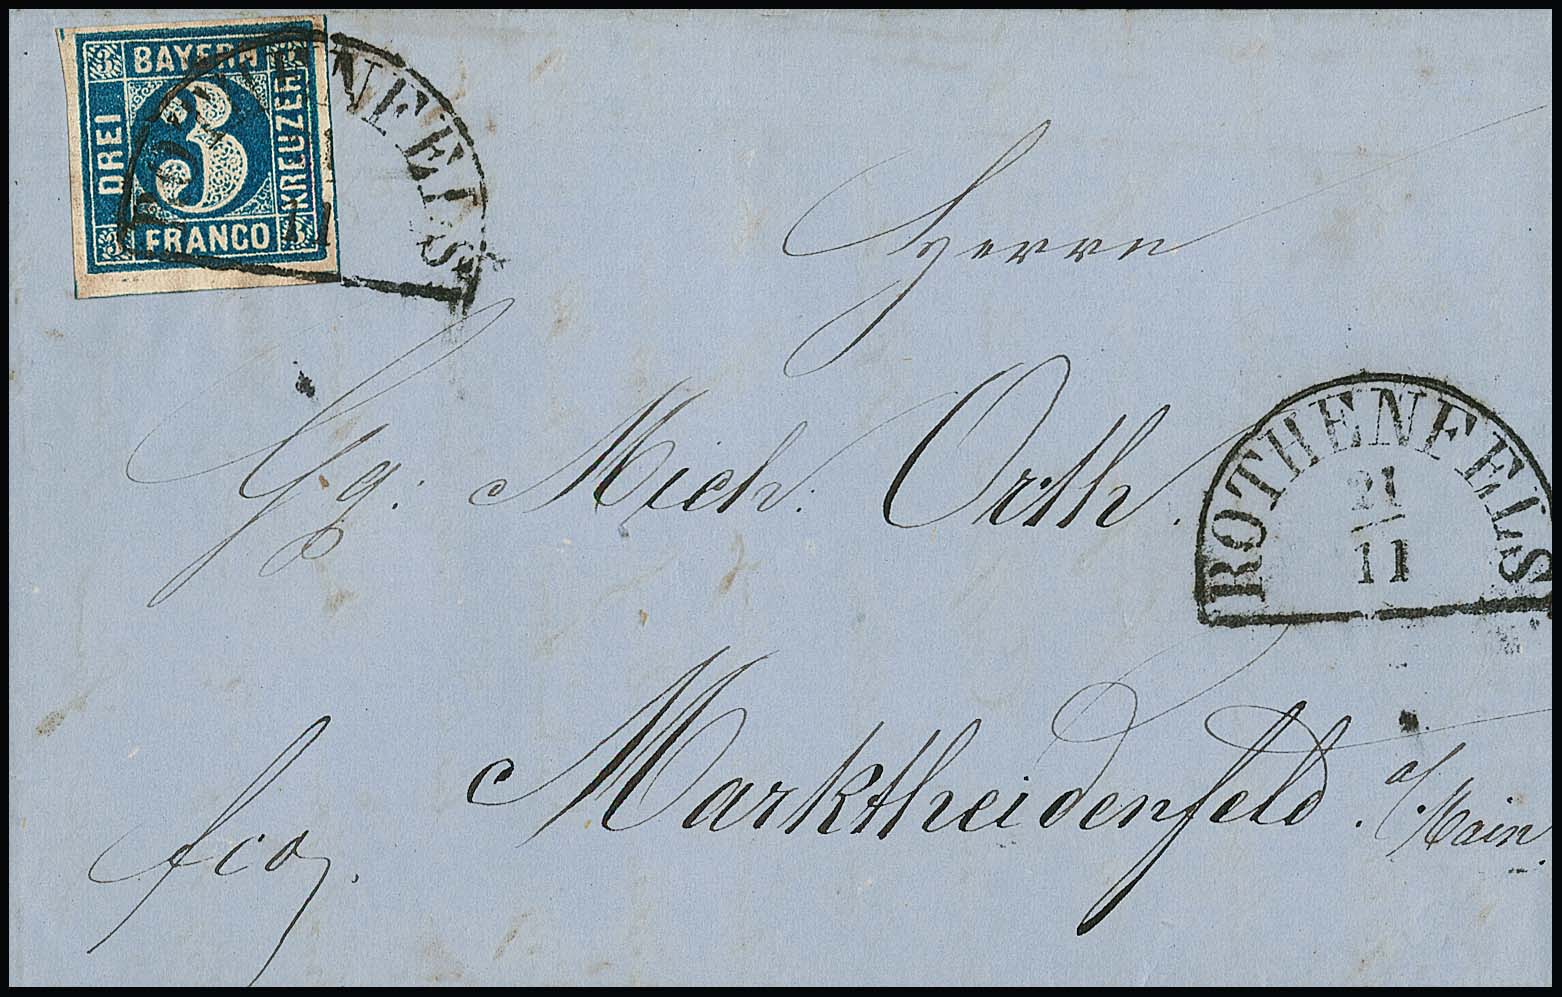 3 BAYERN 3
DREI 3 KREUZER
3 FRANCO 3
ROTHENFELS
11
Herrn
Gg: Mich: Orth.
ROTHENFELS
21
11
Marktheidenfeld. a/Main.
fco.